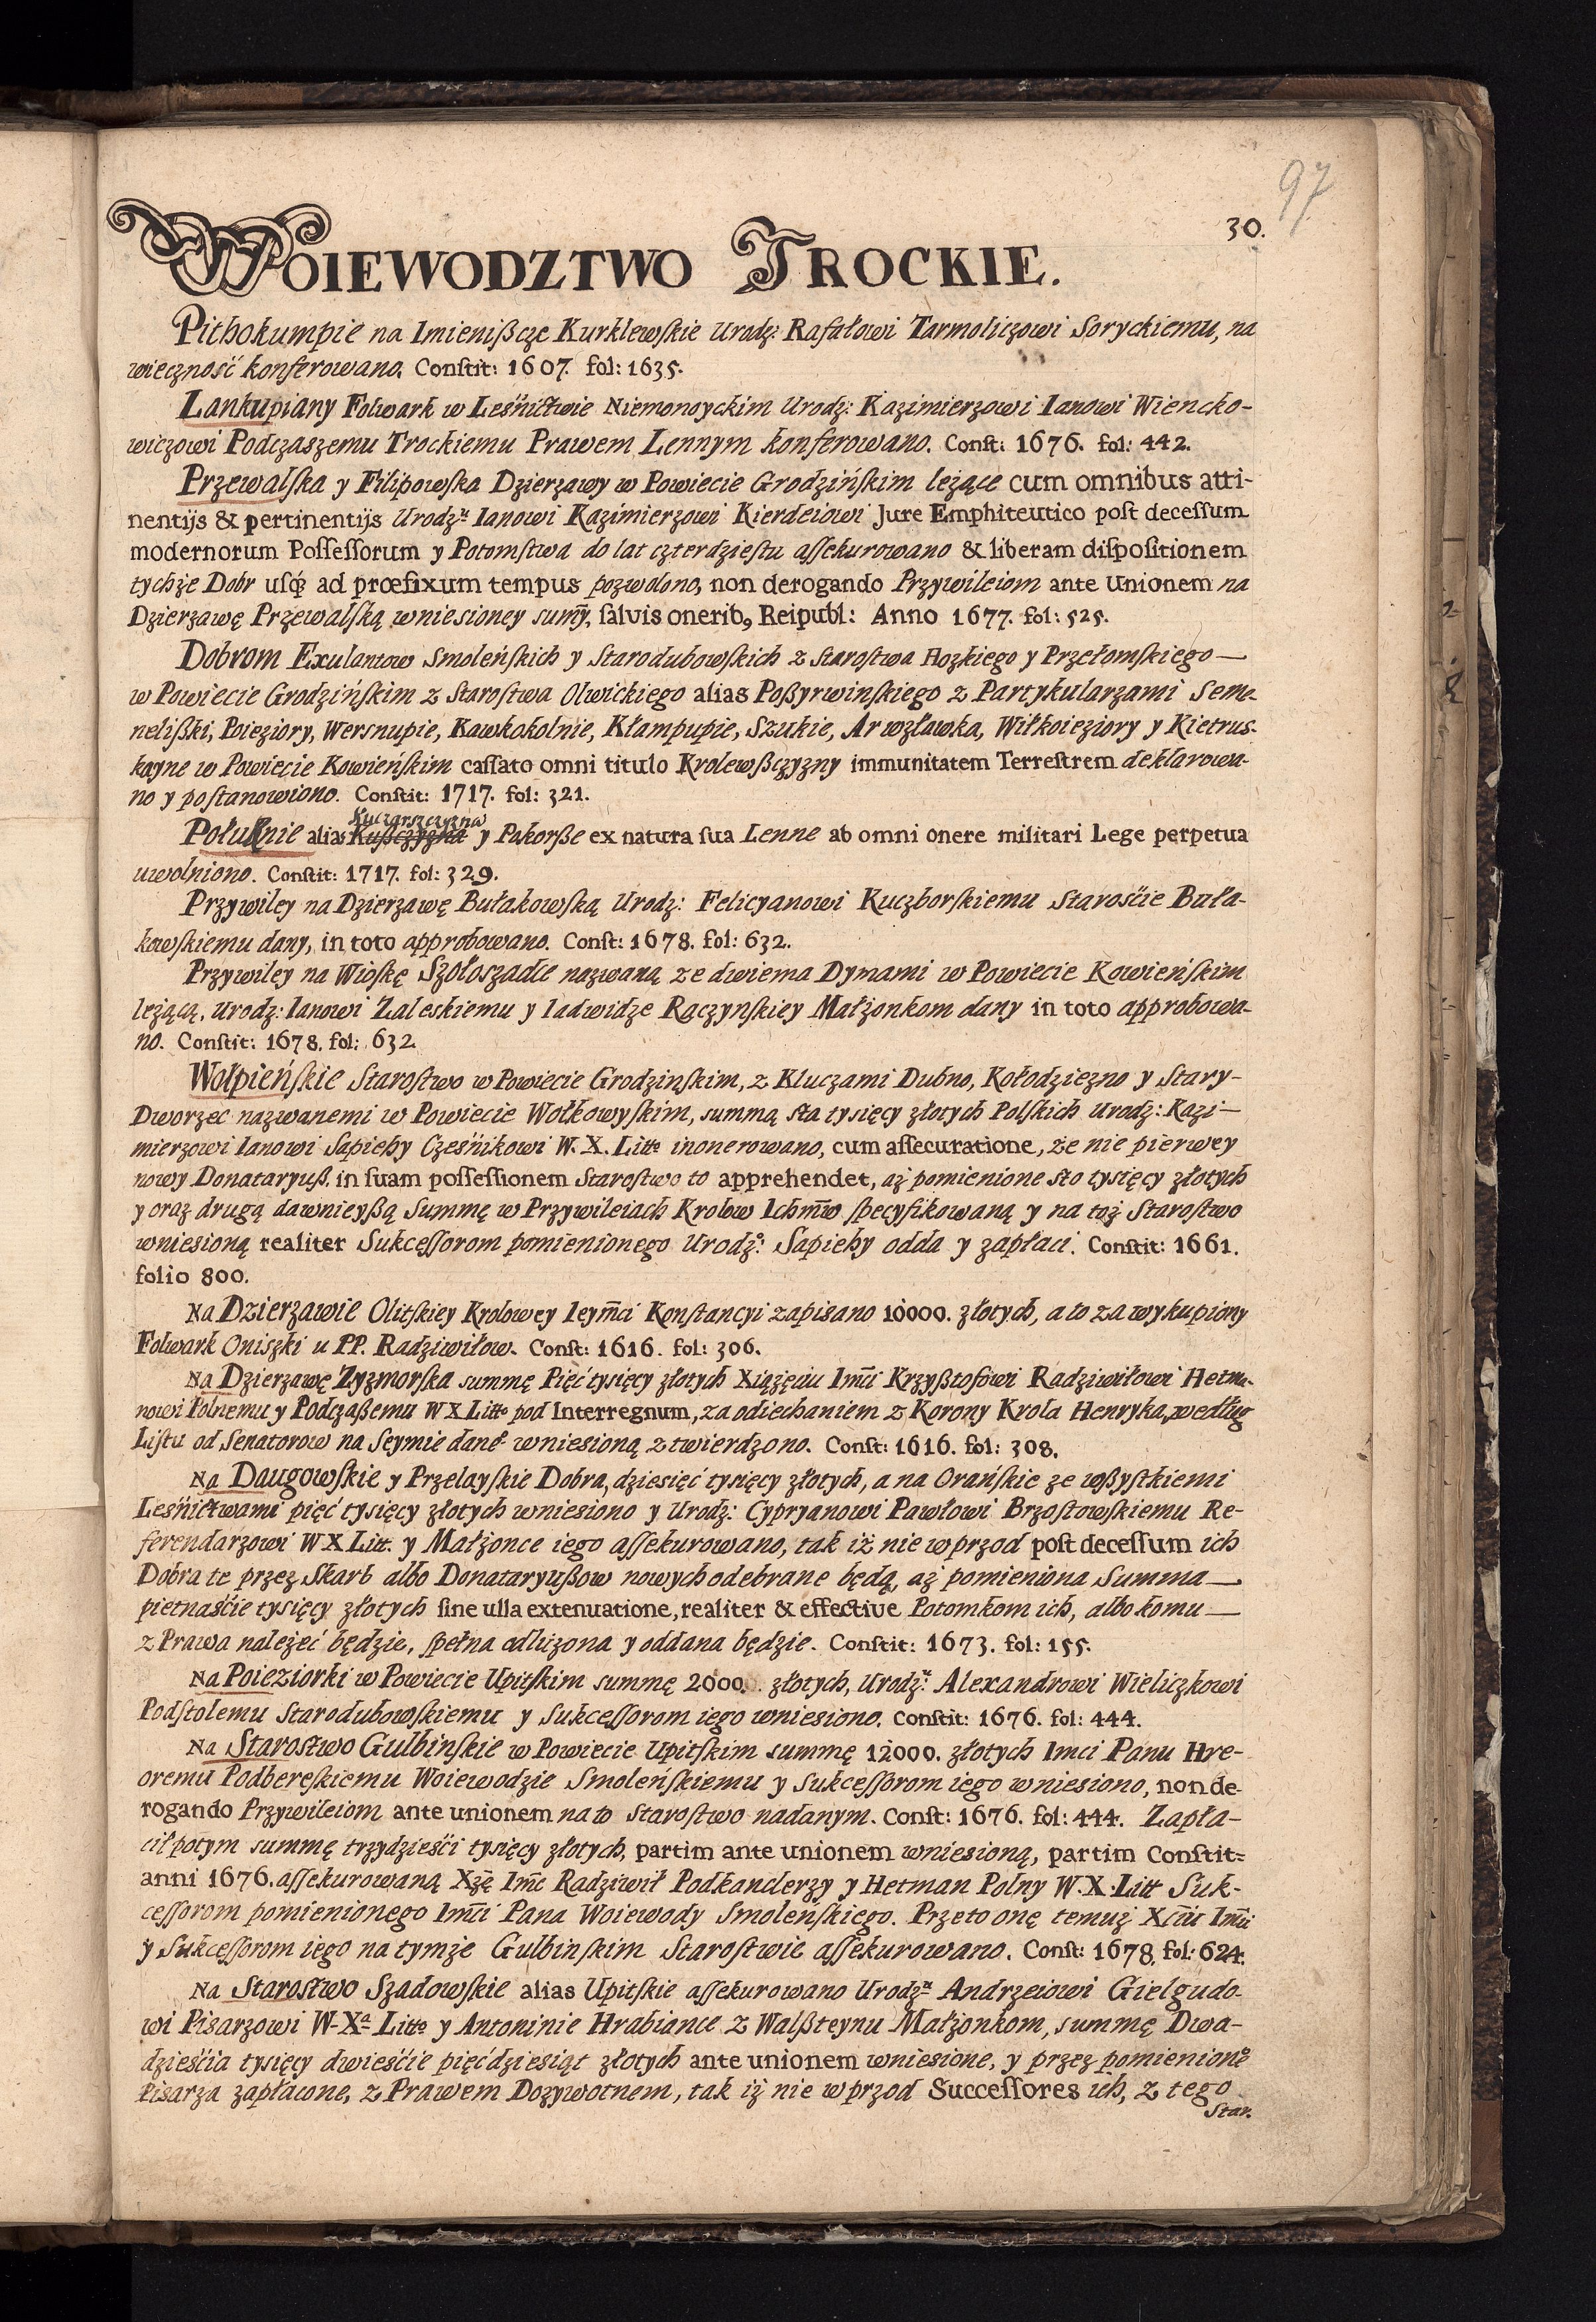 97
30.
WOIEWODZTWO TROCKIE.
Pithokumpie na Imienißcze Kurklewſkie Urodz: Rafałowi Tarmoliczowi Soryckiemu, na
wiecznosć konferowano. Conſtit: 1607. fol: 1635.
Lankupiany Folwark w Leśnictwie Niemonoyckim Urodz: Kazimierzowi Ianowi Wiencko-
wiczowi Podczaszemu Trockiemu Prawem Lennym konferowano. Conſt: 1676. fol: 442.
Przewalſka y Filipowſka Dzierzawy w Powiecie Grodzińſkim leżące cum omnibus atti-
nentijs & pertinentijs Urodz: Ianowi Kazimierzowi Kierdeiowi Jure Emphiteutico poſt deceſſum
modernorum Poſſeſſorum y Potomſtwa do lat czterdzieſtu aſſekurowano & liberam diſpoſitionem
tychże Dobr uſq; ad præfixum tempus pozwolono, non derogando Przywileiom ante Unionem na
Dzierzawę Przewalſką wniesioney sumy, ſalvis onerib, Reipubl: Anno 1677. fol: 525.
Dobrom Exulantow Smoleńſkich y Starodubowſkich z Staroſtwa Hozkiego y Przełomſkiego —
w Powiecie Grodzińſkim z Staroſtwa Olwickiego alias Poßyrwinſkiego z Partykularzami Seme-
nelißki, Poieziory, Wersnupie, Kawkokolnie, Kłampupie, Szukie, Arwzławka, Wiłkoieziory y Kietrus-
kayne w Powiecie Kowieńſkim caſſato omni titulo Krolewßczyzny immunitatem Terreſtrem deklarowa-
no y poſtanowiono. Conſtit: 1717. fol: 321.
Kuczarszczyzna
Połuknie alias Kußczyzna y Pokorße ex natura ſua Lenne ab omni onere militari Lege perpetua
uwolniono. Conſtit: 1717. fol: 329.
Przywiley na Dzierzawę Bułakowſką Urodz: Felicyanowi Kuczborſkiemu Starosćie Buła-
kowſkiemu dany, in toto approbowano. Conſt: 1678. fol: 632.
Przywiley na Wioſkę Szołoszadie nazwaną ze dwiema Dymami w Powiecie Kowieńſkim
leżącą, Urodz: Ianowi Zaleskiemu y Iadwidze Raczynſkiey Małżonkom dany in toto approbowa-
no. Conſtit: 1678. fol: 632.
Wołpieńſkie Staroſtwo w Powiecie Grodzinſkim, z Kluczami Dubno, Kołodziezno y Stary-
Dworzec nazwanemi w Powiecie Wołkowyſkim, summą ſta tysięcy złotych Polſkich Urodz: Kazi-
mierzowi Ianowi Sapieby Cześnikowi W. X. Litto inonerowano, cum aſſecuratione, że nie pierwey
nowy Donataryuß. in ſuam poſſeſſionem Staroſtwo to apprehendet, aż pomienione ſto tysięcy złotych
y oraz drugą dawnieyßą Summę w Przywileiach Krolow Ichmw ſpecyfikowaną y na toż Staroſtwo
wniesioną realiter Sukceſſorom pomienionego Urodz: Sapieby odda y zapłaci. Conſtit: 1661.
folio 800.
Na Dzierzawie Olitſkiey Krolowey Ieymci Konſtancyi zapisano 10000. złotych, a to za wykupiony
Folwark Oniszki u PP. Radziwiłow. Conſt: 1616. fol: 306.
Na Dzierzawę Zyzmorſka summę Pięć tysięcy złotych Xiążęciu Imci Krzyßtofowi Radziwiłowi Hetma-
nowi Polnemu y Podczaßemu W X Litto pod Interregnum, za odiechaniem z Korony Krola Henryka, według
Liſtu od Senatorow na Seymie dane wniesioną ztwierdzono. Conſt: 1616. fol: 308.
Na Daugowſkie y Przelayſkie Dobra, dziesięć tysięcy złotych, a na Orańſkie ze wßyſtkiemi
Leśnictwami pięć tysięcy złotych wniesiono y Urodz: Cypryanowi Pawłowi Brzoſtowſkiemu Re-
ferendarzowi W X Litt. y Małżonce iego aſſekurowano, tak iż nie w przod poſt deceſſum ich
Dobra te przez Skarb albo Donataryußow nowych odebrane będą, aż pomieniona Summa —
pietnaśćie tysięcy złotych ſine ulla extenuatione, realiter & effective Potomkom ich, albo komu —
z Prawa należeć będzie, ſpełna odliczona y oddana będzie. Conſtit: 1673. fol: 155.
Na Poieziorki w Powiecie Upitſkim summę 2000. złotych, Urodz: Alexandrowi Wieliczkowi
Podſtolemu Starodubowſkiemu y Sukceſſorom iego wniesiono. Conſtit: 1676. fol: 444.
Na Staroſtwo Gulbinſkie w Powiecie Upitſkim summę 12000. złotych Imci Panu Hre-
oremu Podbereſkiemu Woiewodzie Smoleńſkiemu y Sukceſſorom iego wniesiono, non de-
rogando Przywileiom ante unionem na to Staroſtwo nadanym. Conſt: 1676. fol: 444. Zapła-
cił potym summę trzydzieśći tysięcy złotych, partim ante unionem wniesioną, partim Conſtit=
anni 1676. aſſekurowaną Xżę Imc Radziwił Podkanclerzy y Hetman Polny W. X. Litt Suk-
ceſſorom pomienionego Imci Pana Woiewody Smoleńſkiego. Przeto onę temuż Xciu Imci
y Sukceſſorom iego na tymże Gulbinſkim Staroſtwie aſſekurowano. Conſt: 1678. fol: 624.
Na Staroſtwo Szadowſkie alias Upitſkie aſſekurowano Urodz: Andrzeiowi Gielgudo-
wi Pisarzowi W. Xa Litto y Antoninie Hrabiance z Walßteynu Małżonkom, summę Dwa-
dzieśćia tysięcy dwieśćie pięćdziesiąt złotych ante unionem wniesione, y przez pomienione
Pisarza zapłacone, z Prawem Dozywotnem, tak iż nie w przod Succeſſores ich, z tego
Star.